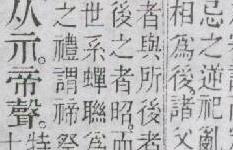 忌之逆祀亂
相爲後諸父
者與所後者
後之者昭。而
世系蟬聯爲
之禮謂禘祭
从示。帝聲。